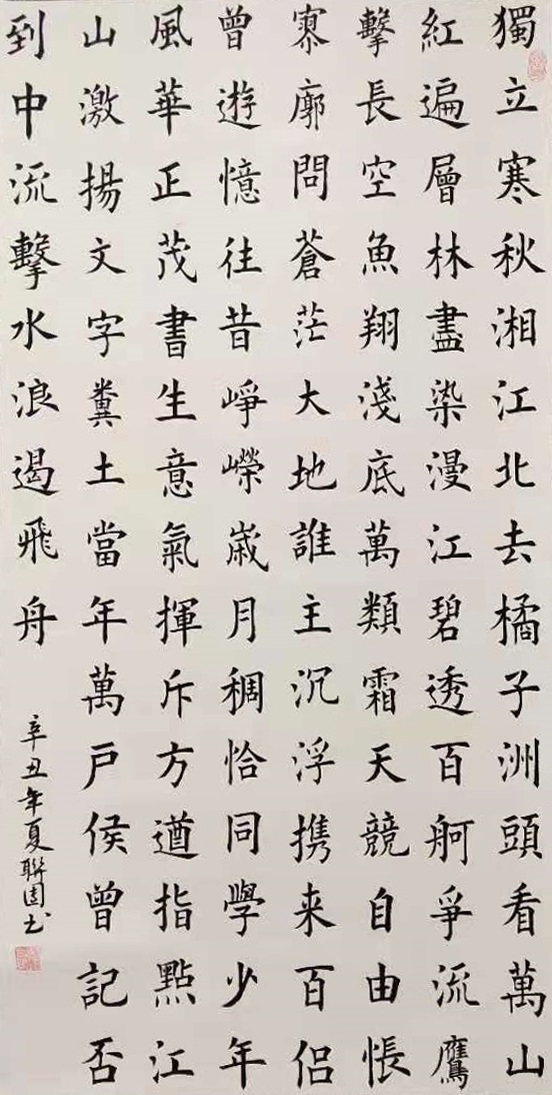 獨立寒秋湘江北去橘子洲頭看萬山
紅遍層林盡染漫江碧透百舸爭流鷹
擊長空魚翔淺底萬類霜天競自由悵
寥廓問蒼茫大地誰主沉浮携来百侣
曾遊憶往昔崢嶸嵗月稠恰同學少年
風華正茂書生意氣揮斥方遒指點江
山激揚文字糞土當年萬户侯曾記否
到中流擊水浪遏飛舟
辛丑年夏聯书